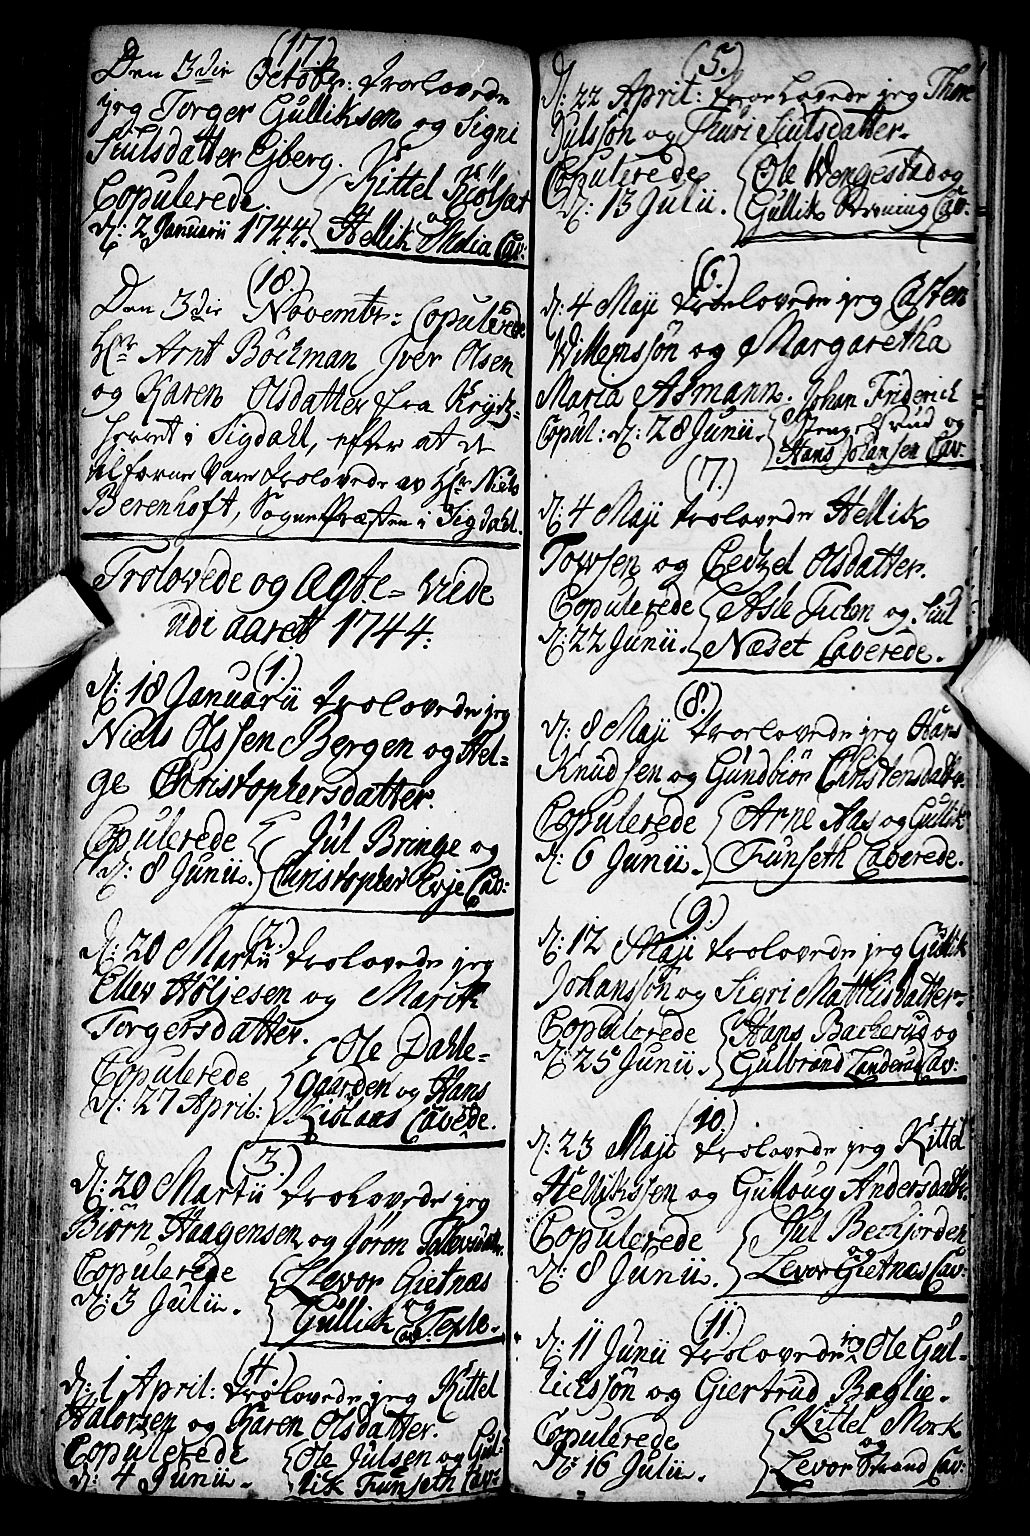 (17)
Den 3die Octobr: trolovede
jeg Torger Gulliksen og Signi
Siulsdatter Ejberg.
Copulerede
d: 2 Januarii 1744.
Kittel Kiölsat
og
Hellik Molia Cav:
(18.)
Den 3die Novembr: Copulerede
Hr Arnt Böckman Iver Olsen
og Karen Olsdatter fra Krydz-
herret i Sigdahl, efter at de
tilforne vare trolovede av Hr Niels
Berenhoft, Sognepræsten i Sigdahl.
Trolovede og Ægte-viede
udi aaret 1744.
(1.)
d: 18 Januarii trolovede jeg
Niels Olssen Bergen og Hel-
ge Christophersdatter.
Copulerede
d: 8 Junii.
Jul Bringe og
Christopher Evje Cav:
(2.)
d: 20 Martii trolovede jeg
Ellev Höljesen og Marith
Torgersdatter.
Copulerede
d: 27 April:
Ole Dahle-
gaarden og Hans
Kiölaas Cavede.
(3.)
d: 20 Martii trolovede jeg
Biörn Haagensen og Jöron Tolevsdatter.
Copulerede
d: 3 Julii.
Levor Gietnæs
og
Gullik Teple. Cav:
(4.)
d: 1 April: trolovede jeg Kittel
Halorsen og Karen Olsdatter.
Copulerede
d: 4 Junii.
Ole Julsen og Gul-
lik Funseth Cav:
(5.)
d: 22 April: trolovede jeg Thore
Julssön og Thuri Siulsdatter.
Copulerede
d: 13 Julii.
Ole Wengestad og
Gullik Cav:
(6.)
d: 4 Maji trolovede jeg Casten
Willemssön og Margaretha
Maria Asmann.
Copul: d: 28 Junii.
Johan Friderich
Stengelsrud og
Hans Johansen Cav:
(7.)
d: 4 Maji trolovede Hellik
Towsen og Cedzel Olsdatter.
Copulerede
d: 22 Junii.
Asle og
Næset Caverede.
(8.)
d: 8 Maji trolovede jeg Hans
Knudsen og Gundbiör Christensdattr.
Copulerede
d: 6 Junii.
Arne Aas og Gullik
Funseth Caverede.
(9.)
d: 12 Maji trolovede jeg Gullik
Johanssön og Sigri Matthisdatter.
Copulerede
d: 25 Junii.
Hans Backerud og
Gulbrand Landerud Cav:
(10.)
d: 23 Maji trolovede jeg Kittel
Hellikssen og Gulloug Andersdattr.
Copulerede
d: 8 Junii.
Jul Beckjorden
og
Levor Gietnæs Cav:
(11.)
d: 11 Junii trolovede jeg Ole Gul-
lickssön og Giertrud Baglie.
Copulerede
d: 16 Julii.
Kittel Mork
og
Levor Strand Cav: